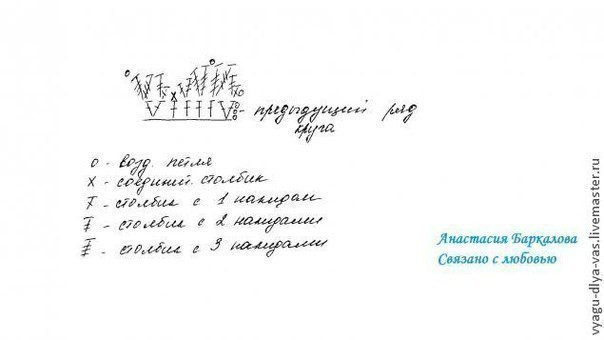 - предыдущий ряд
круга
о - возд. петля
х - соединит. столбик
Ŧ - столбик с 1 накидом
Ŧ - столбик с 2 накидами
Ŧ - столбик с 3 накидами
Анастасия Баркалова
Связано с любовью
vyagu-dlya-vas.livemaster.ru